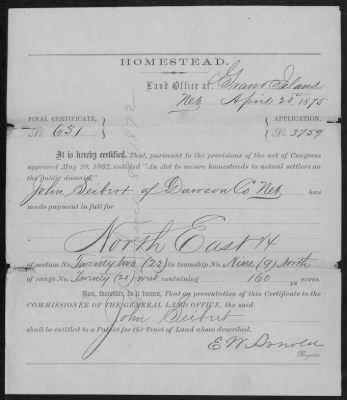 HOMESTEAD.
Land Office at Grand Island
Neb April 20th 1875
FINAL CERTIFICATE, APPLICATION,
No. 631 No. 3759
It is hereby certified, That, pursuant to the provisions of the act of Congress
approved May 20, 1862, entitled "An Act to secure homesteads to actual settlers on
the public domain,"
John Seibert of Dawson Co Neb has
made payment in full for
North East 1/4
of section No. Twenty two (22) in township No. Nine (9) North
of range No. Twenty (20) West containing 160 acres.
Now, therefore, be it known, That on presentation of this Certificate to the
COMMISSIONER OF THE GENERAL LAND OFFICE, the said
John Seibert
shall be entitled to a Patent for the Tract of Land above described.
E W Arnold
Register.